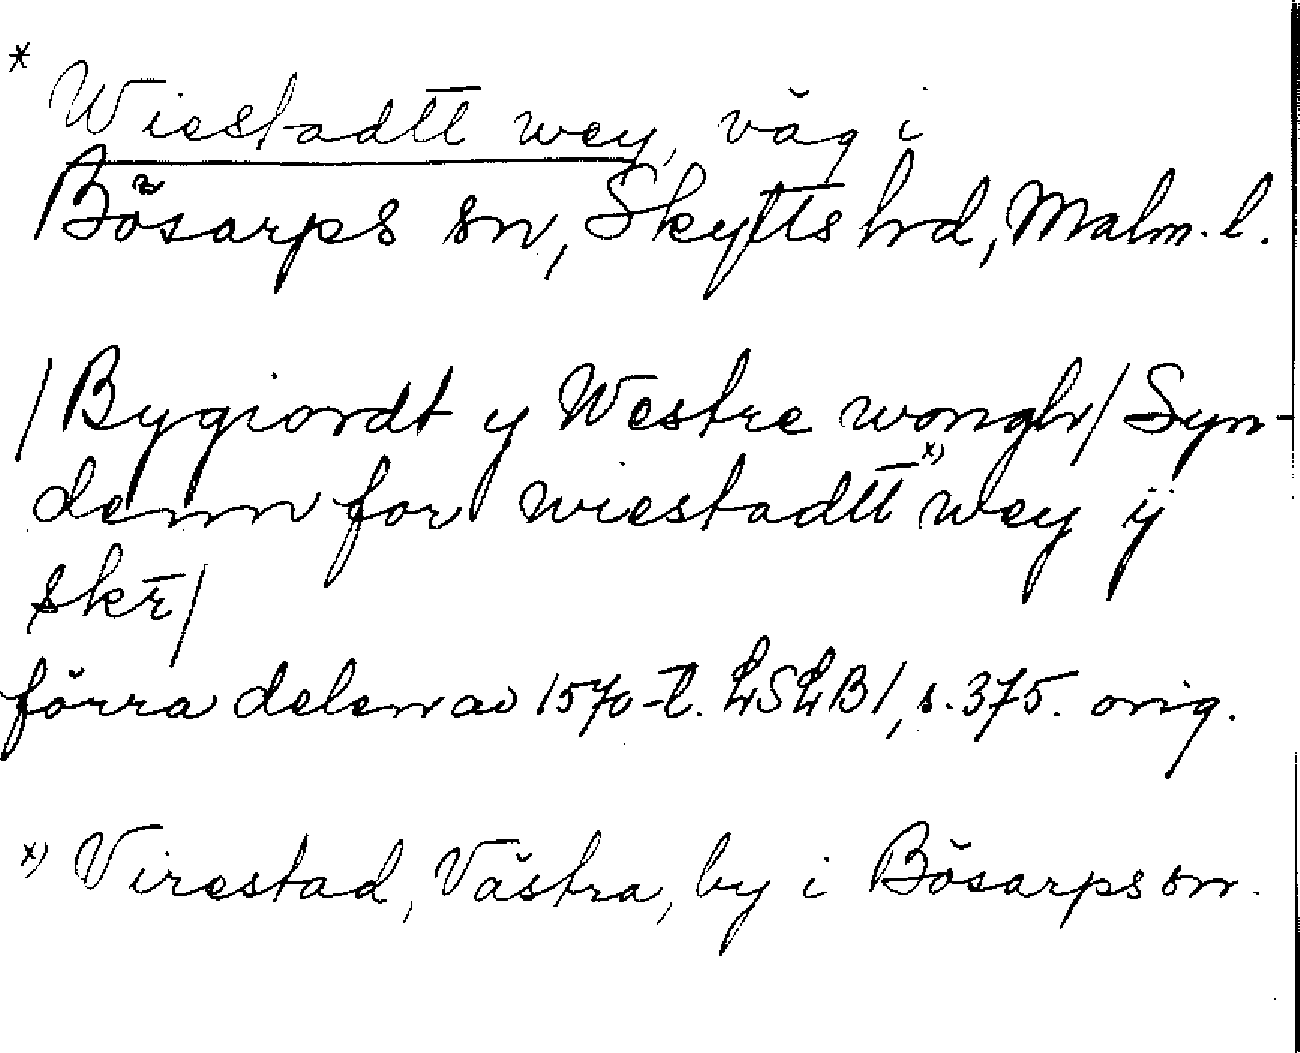 * Wiestadtt wey, väg i
Bösarps sn, Skytts hd, Malm. l.
/Bygiordt y Westre wongh/ Syn-
denn for wiestadtt x) wey ÿ
skr̄/
förra delen av 1570-t. LSLB1, s. 375. orig.
x) Virestad, Västra, by i Bösarps sn.